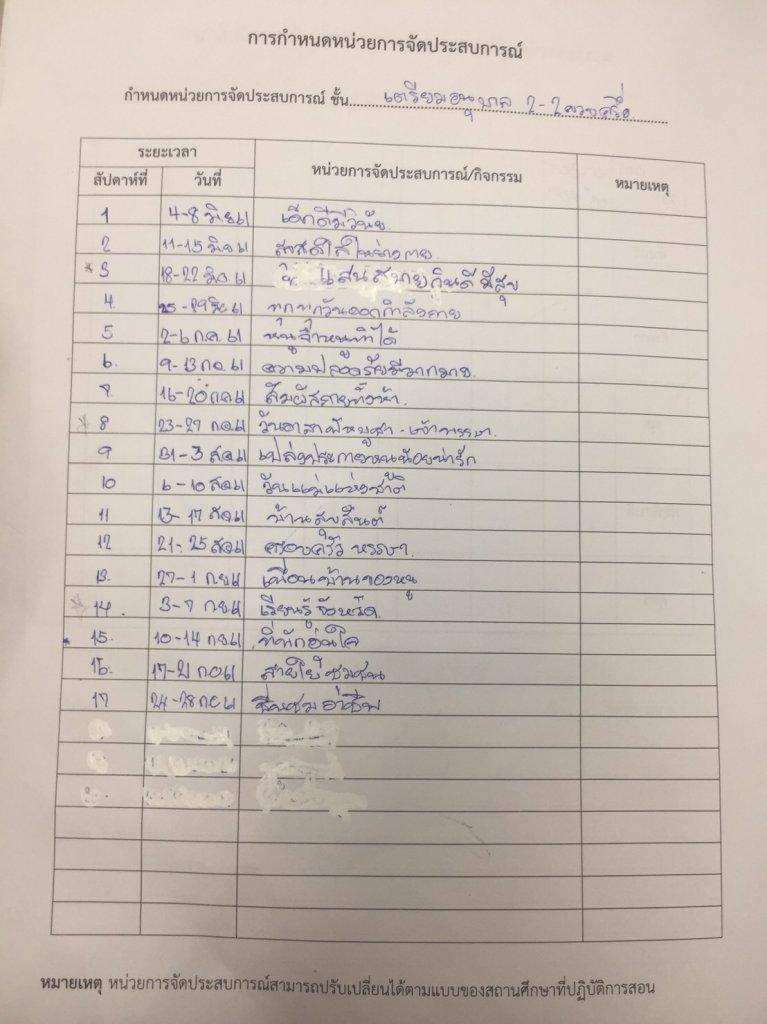 การกำหนดหน่วยการจัดประสบการณ์
กำหนดหน่วยการจัดประสบการณ์ ชั้น เตรียมอนุบาล 2-2ขวบครึ่ง
ระยะเวลา หน่วยการจัดประสบการณ์/กิจกรรม หมายเหตุ
สัปดาห์ที่ วันที่
1 4-8 มิย61 เด็กดีมีวินัย
2 11-15 มิย61 สดใสในร่างกาย
*3 18-22 มิย61 แสนสบายกินดีมีสุข
4 25-29มิย61 ทุกๆวันออกกำลังกาย
5 2-6 ก.ค.61 หนูจ๋าหนูทำได้
6. 9-13 กค.61 ความปลอดภัยมีมากมาย
7 16-20กค61 สัมผัสกายทั้งห้า
*8 23-27 กค61 วันอาสาฬหบูชา-เข้าพรรษา
9 31-3 สค61 เปล่งประกายหนูน้อยน่ารัก
10 6-10 สค61 วันแม่แห่งชาติ
11 13-17 สค61 บ้านสุขสันต์
12 21-25 สค61 ครอบครัวหรรษา
13. 27-1 กย61 เพื่อนบ้านของหนู
*14. 3-7 กย61 เรียนรู้จังหวัด
*15. 10-14 กย61 ที่พักอุ่นใจ
16. 17-21 กย61 สายใยชุมชน
17 24-28กย61 ชื่นชมอาชีพ
หมายเหตุ หน่วยการจัดประสบการณ์สามารถปรับเปลี่ยนได้ตามแบบของสถานศึกษาที่ปฏิบัติการสอน